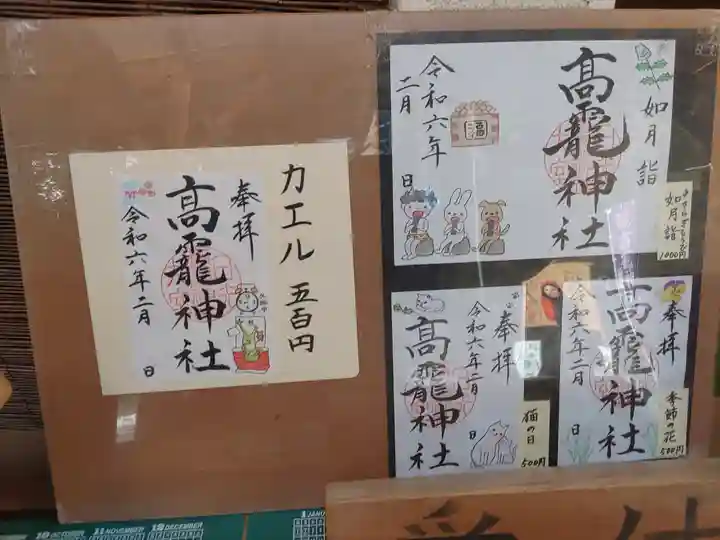 カエル 五百円
奉拝
高龗神社
令和六年二月
日
如月詣
高龗神社
福
令和六年
二月
日
きさらぎもうで
如月詣
1000円
奉拝
高龗神社
令和六年二月
日
猫の日
500円
奉拝
高龗神社
令和六年二月
日
季節の花
500円
10 OCTOBER
11 NOVEMBER
12 DECEMBER